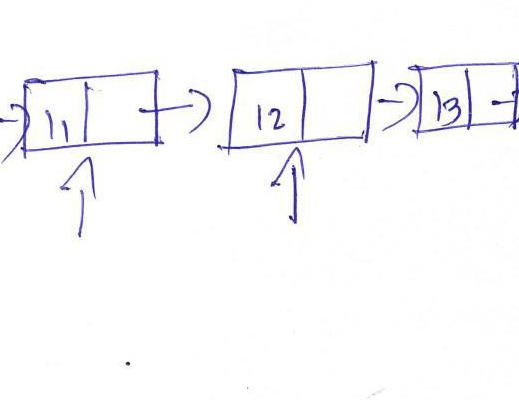 11 12 13